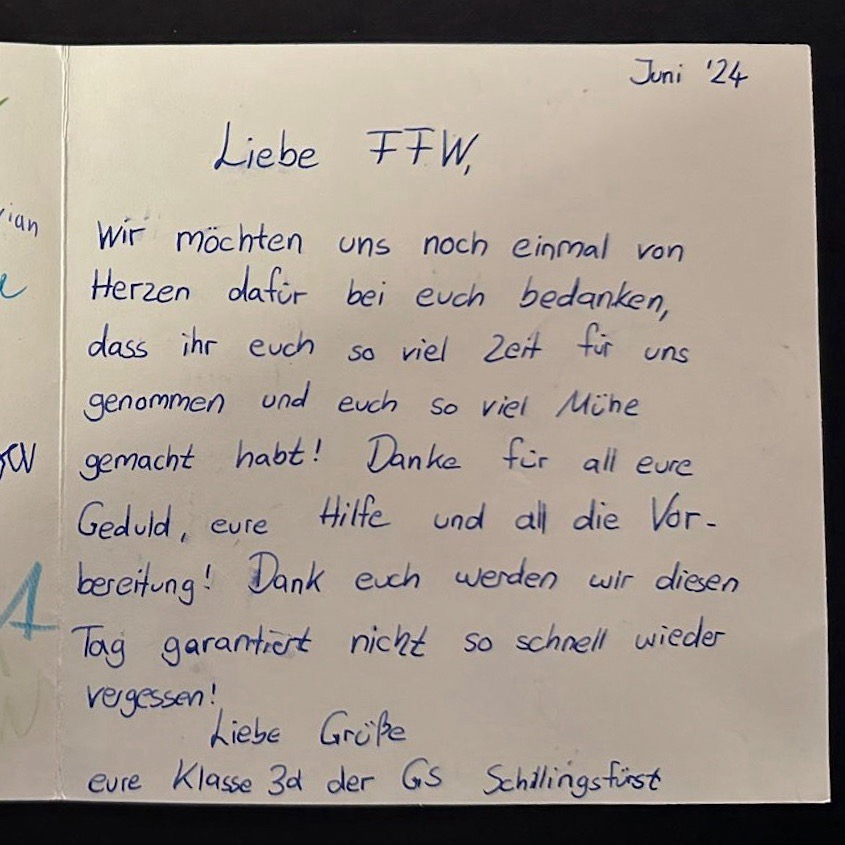 Juni '24
Liebe FFW,
Wir möchten uns noch einmal von
Herzen dafür bei euch bedanken,
dass ihr euch so viel Zeit für uns
genommen und euch so viel Mühe
gemacht habt! Danke für all eure
Geduld, eure Hilfe und all die Vor-
bereitung! Dank euch werden wir diesen
Tag garantiert nicht so schnell wieder
vergessen!
Liebe Grüße
eure Klasse 3d der GS Schillingsfürst